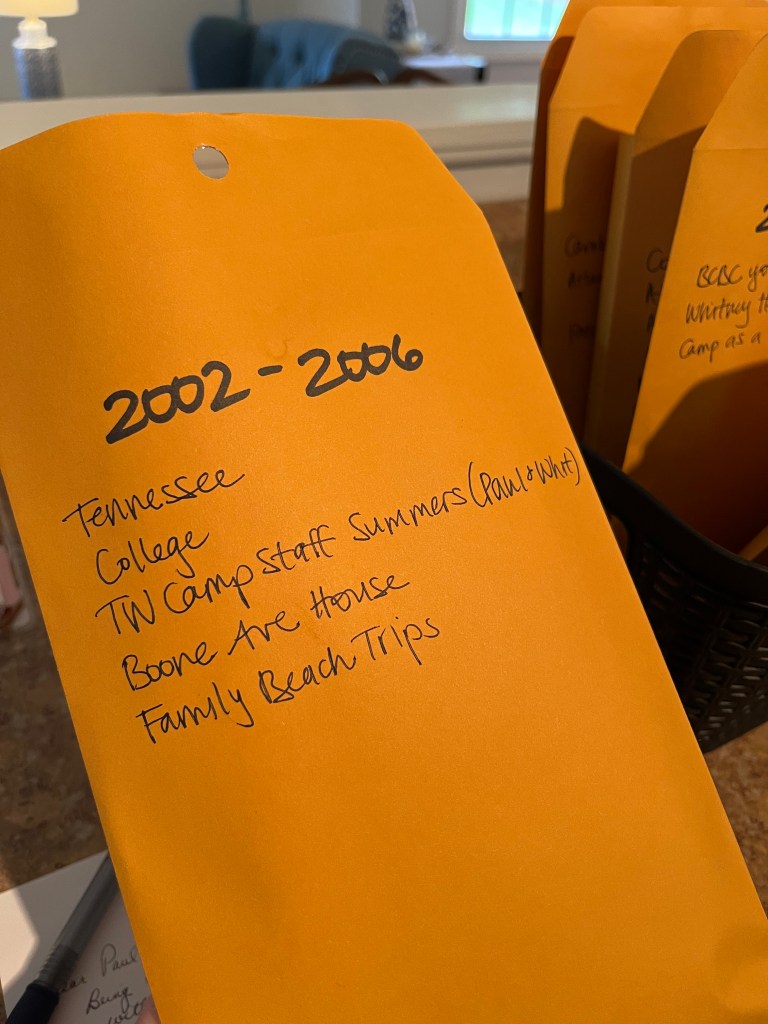 2002 - 2006
Tennessee
College
TW Camp Staff Summers (Paul & Whit)
Boone Ave House
Family Beach Trips
BCBC
Whitney
Camp as a
Paul